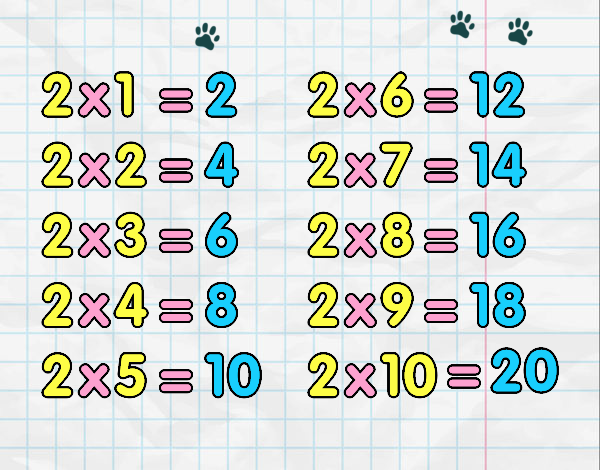 2×1=2
2×2=4
2×3=6
2×4=8
2×5=10
2×6=12
2×7=14
2×8=16
2×9=18
2×10=20